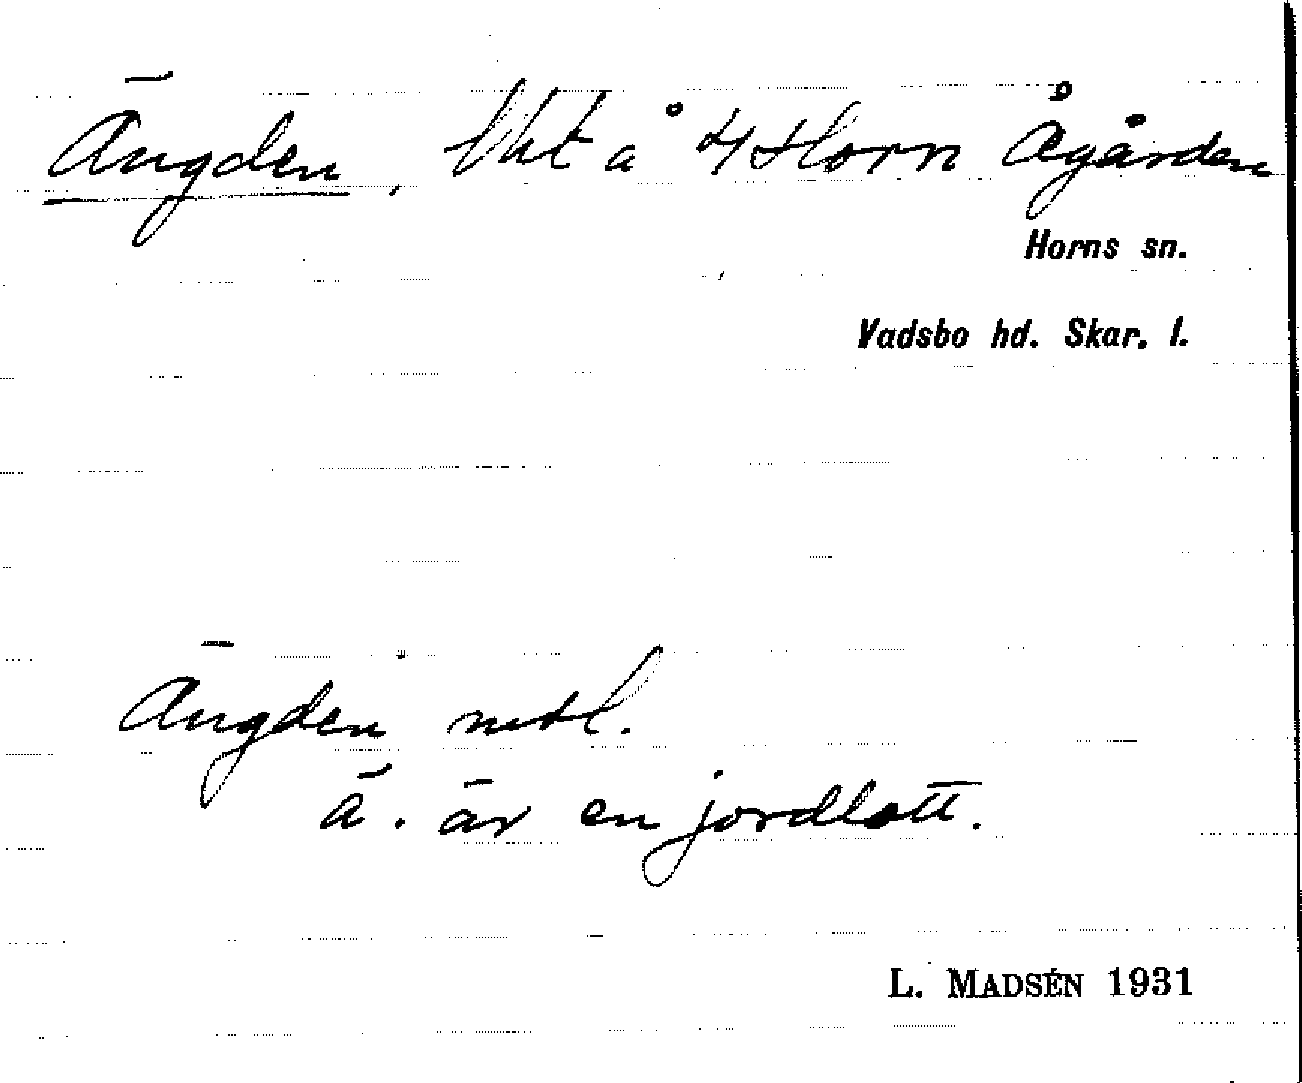 Ängden, lht å 4 Horn Ågården
Horns sn.
Vadsbo hd. Skar. l.
Ängden mtl.
Ä. är en jordlott.
L. MADSÉN 1931